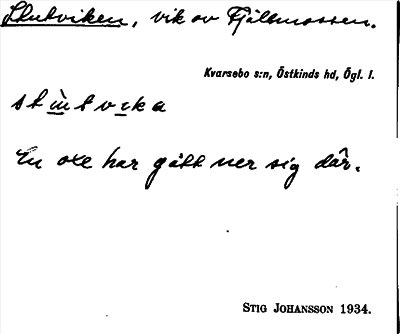 Stutviken, vik av Fjällmossen.
Kvarsebo s:n, Östkinds hd, Ögl. l.
stùtvıka
En oxe har gått ner sig där.
STIG JOHANSSON 1934.